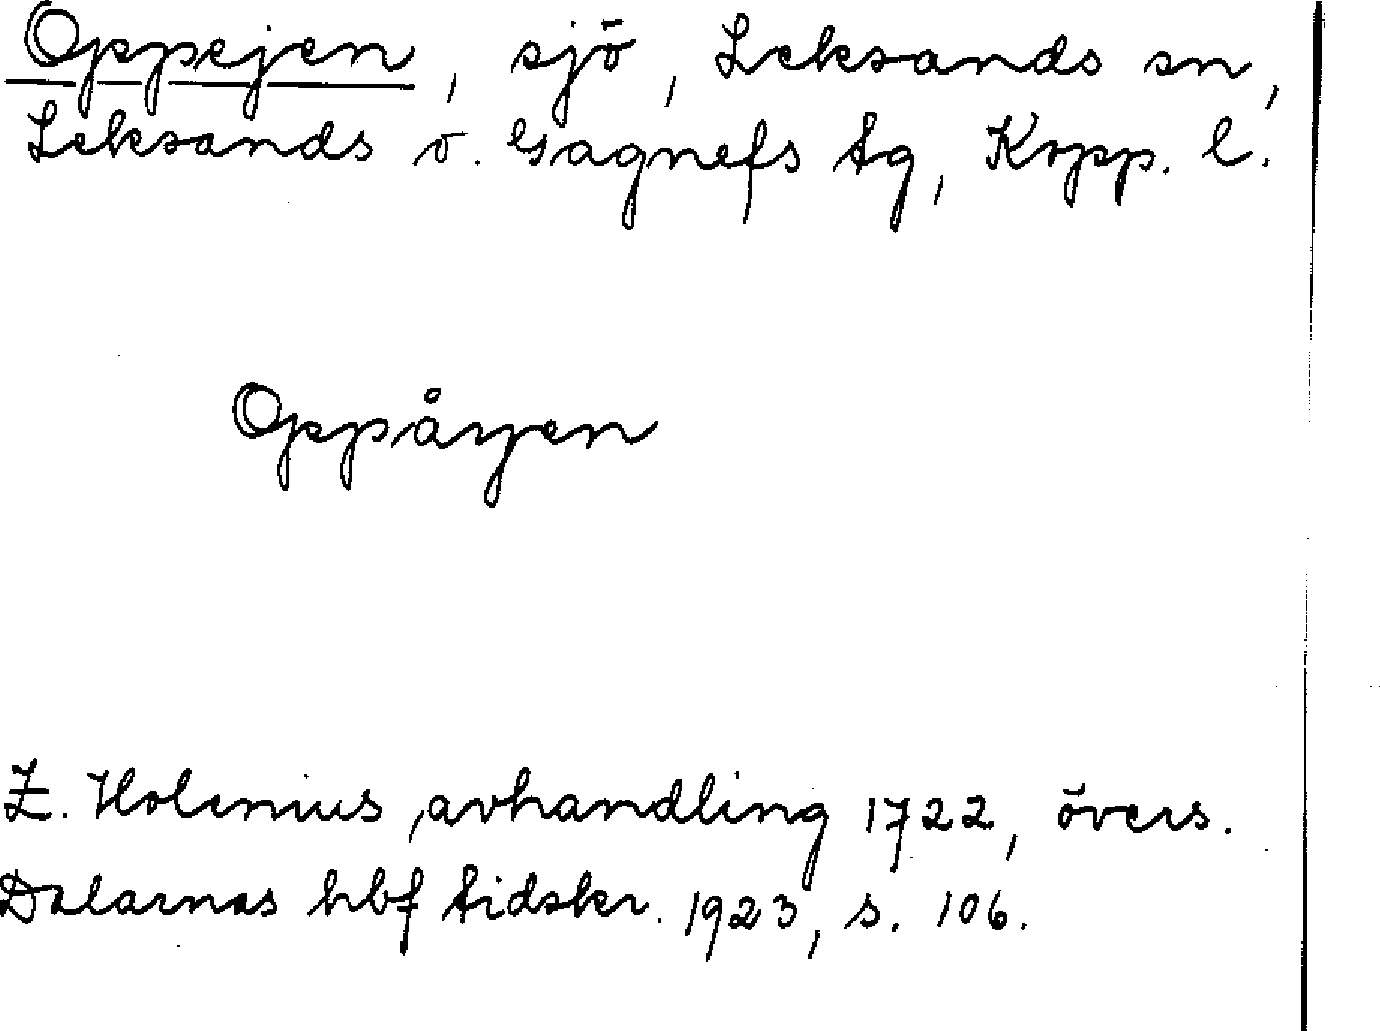 Oppejen, sjö, Leksands sn,
Leksands o. Gagnefs tg, Kopp. l.
Oppåyen
Z. Holenius, avhandling 1722, övers.
Dalarnas hbf tidskr. 1923, s. 106.